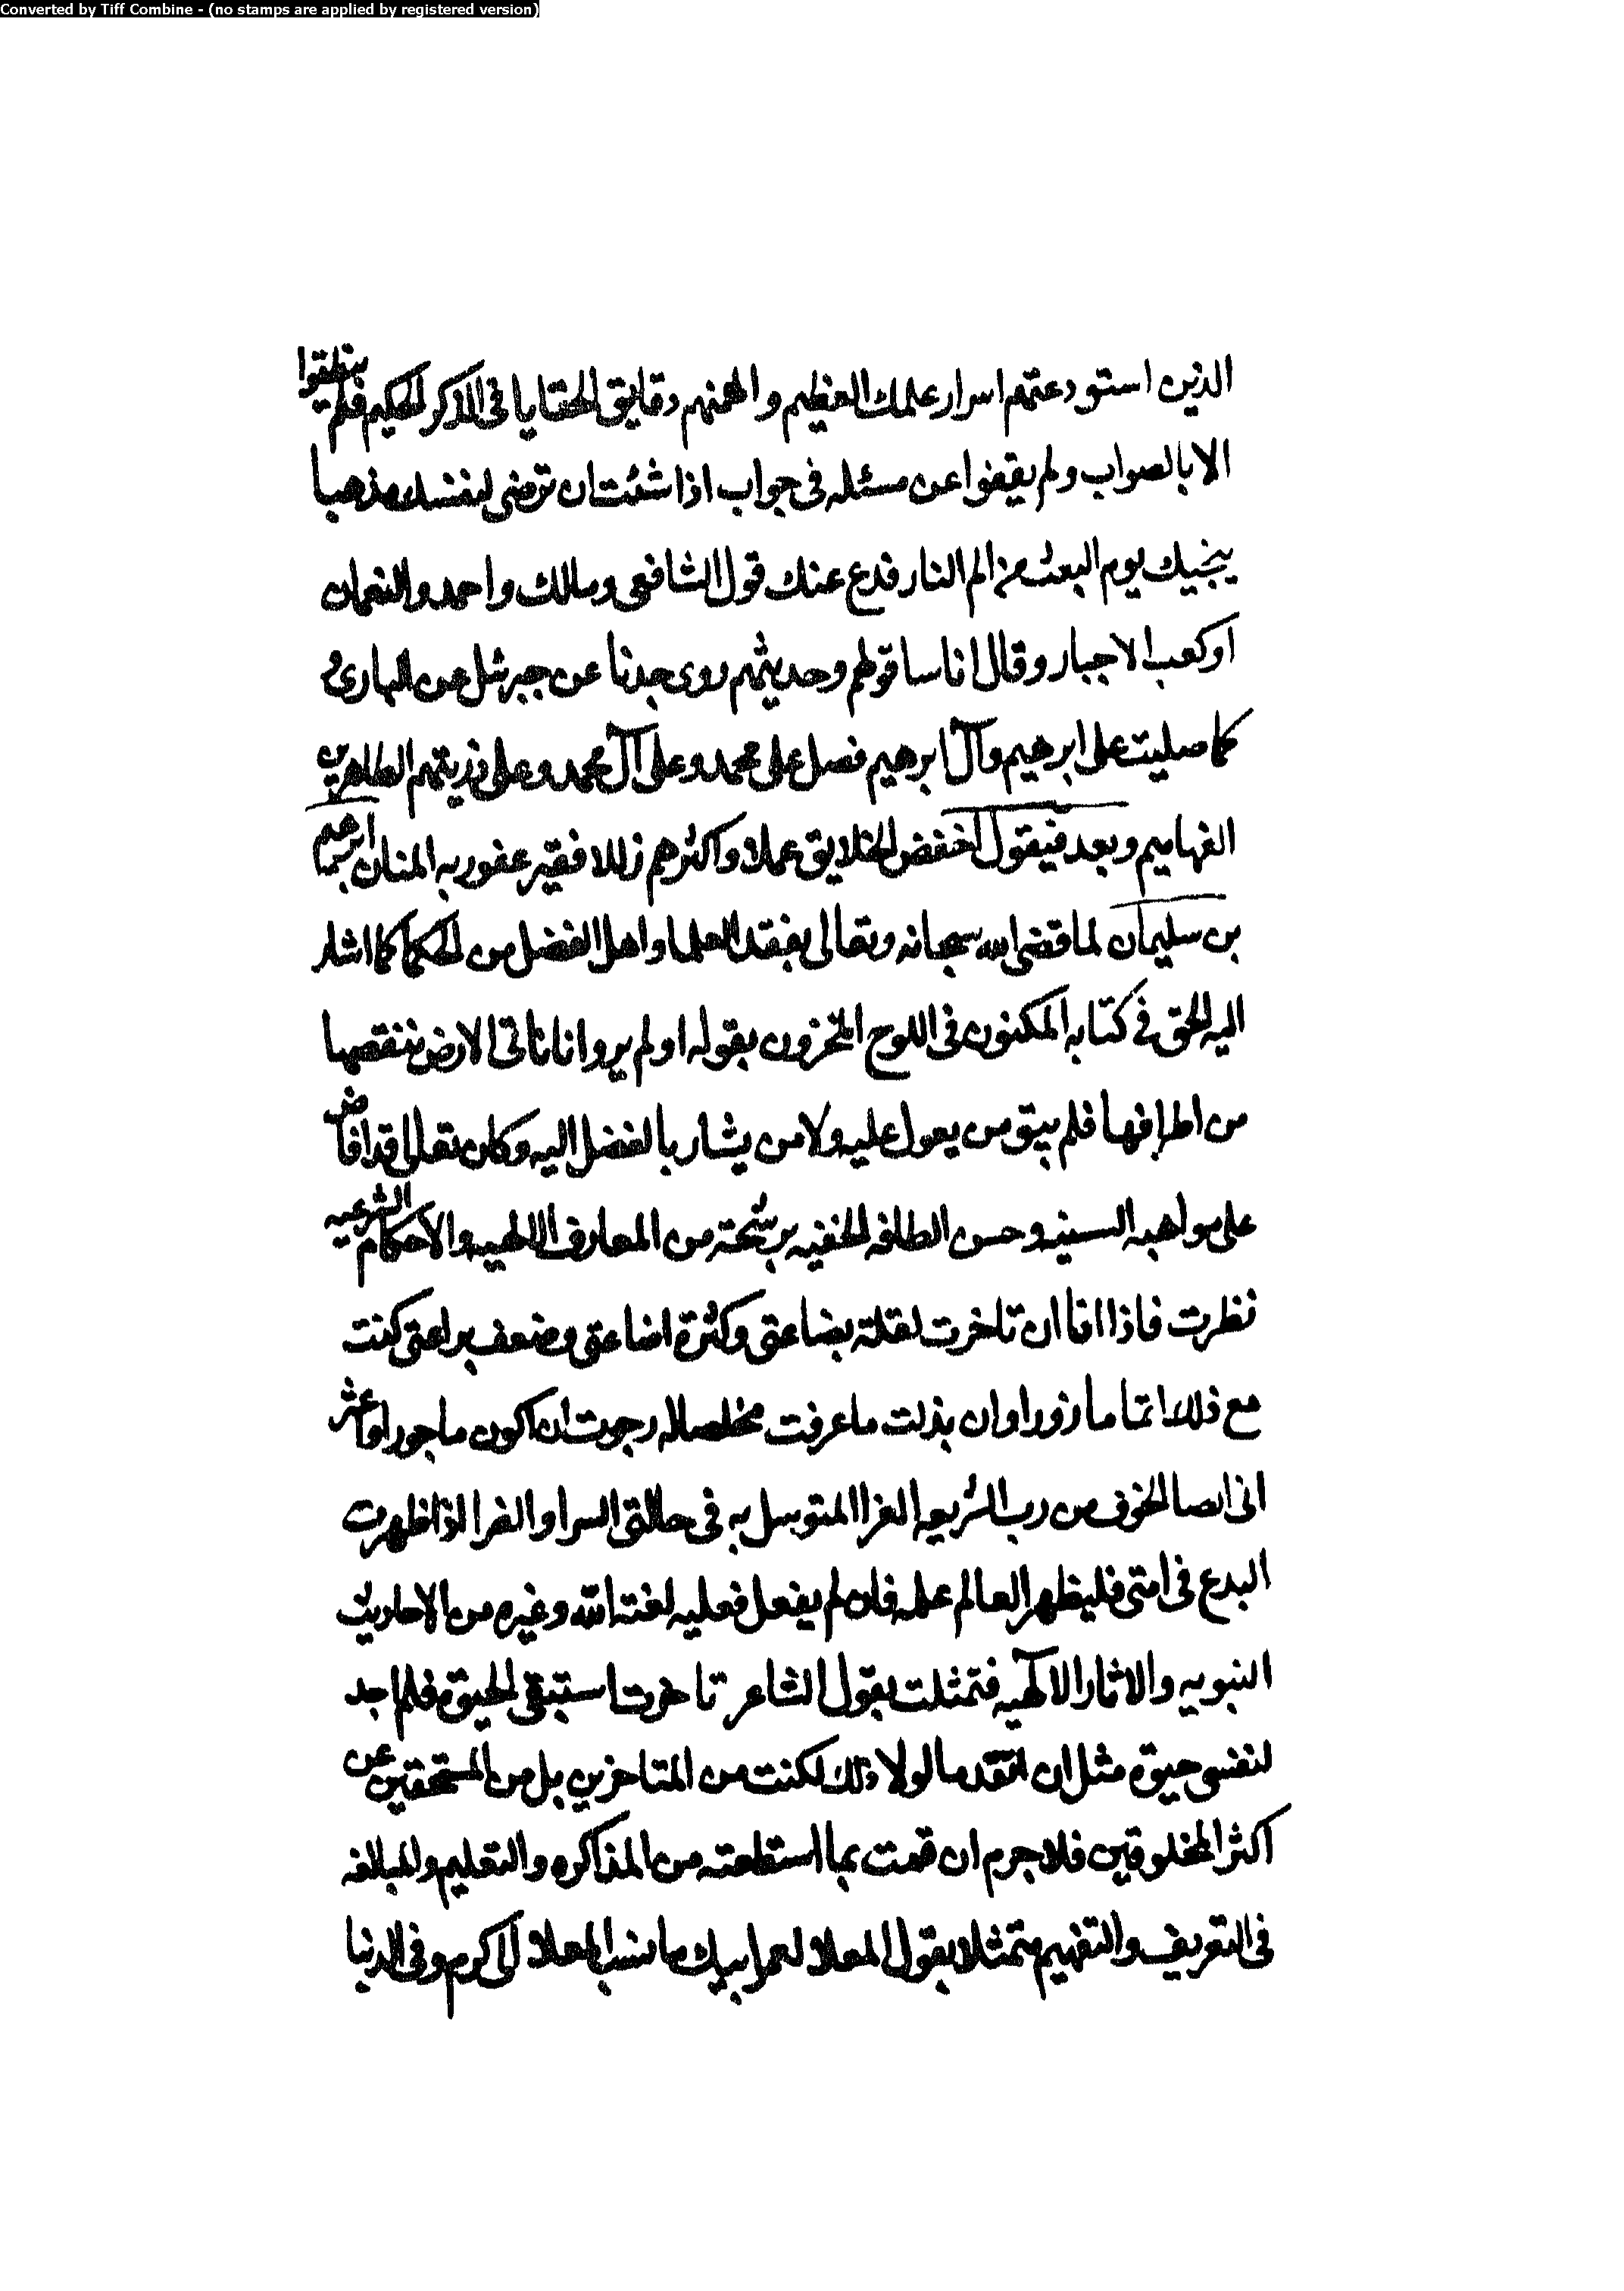 Converted by Tiff Combine - (no stamps are applied by registered version)
الذين استودعتهم اسرار علمك العظيم والهمتهم دقايق الخفايا فى الذكر الحكيم فلم ينطقوا
الا بالصواب ولم يقفوا عن مسئله فى جواب اذا شئت ان ترضى لنفسك مذهبا
ينجيك يوم البعث من الم النار فدع عنك قول الشافعى ومالك واحمد والنعمان
او كعب الاحبار ووال اناسا قولهم وحديثهم روى جدنا عن جبرئيل عن البارى
كما صليت على ابرهيم وآل ابرهيم فصل على محمد وعلى آل محمد وعلى ذريتهم الطاهرين
الفهاميم وبعد فيقول اخفض الخلايق عملا واكثرهم زللا فقير عفو ربه المنان ابرهيم
بن سليمان لما قضى الله سبحانه وتعالى بفقد العلما واهل الفضل من الحكما كما اشار
اليه الحق فى كتابه المكنون فى اللوح المخزون بقوله اولم يروا انا ناتى الارض ننقصها
من اطرافها فلم يبق من يعول عليه ولا من يشار بالفضل اليه وكان تعالى قد افاض
على مواهبه السنيه وحسن الطافه الخفيه برشحة من المعارف الالهيه والاحكام الشرعيه
نظرت فاذا انا ان تاخرت لقلة بضاعتى وكثرة اضاعتى وضعف براعتى كنت
مع ذلك اثما مأزورا وان بذلت ما عرفت مخلصا له رجوت ان اكون ماجورا
انى ايضا لخوف من رب الشريعه الغرا المتوسل به فى حالتى السرا والضرا اذا ظهرت
البدع فى امتى فليظهر العالم علمه فان لم يفعل فعليه لعنة الله وغيره من الاحاديث
النبويه والاثار الالهيه فتمثلت بقول الشاعر تاخرت استبقى الحيوة فلم اجد
لنفسى حيوة مثل ان اتقدما لولا ذلك لكنت من المتاخرين بل من المستحقين عن
اكثر المخلوقين فلا جرم ان قمت بما استطعته من المذاكره والتعليم والمبالغه
فى التعريف والتفهيم متمثلا بقول المعلا لعمر ابيك ما نسب المعلا الى كرم وفى الدنيا